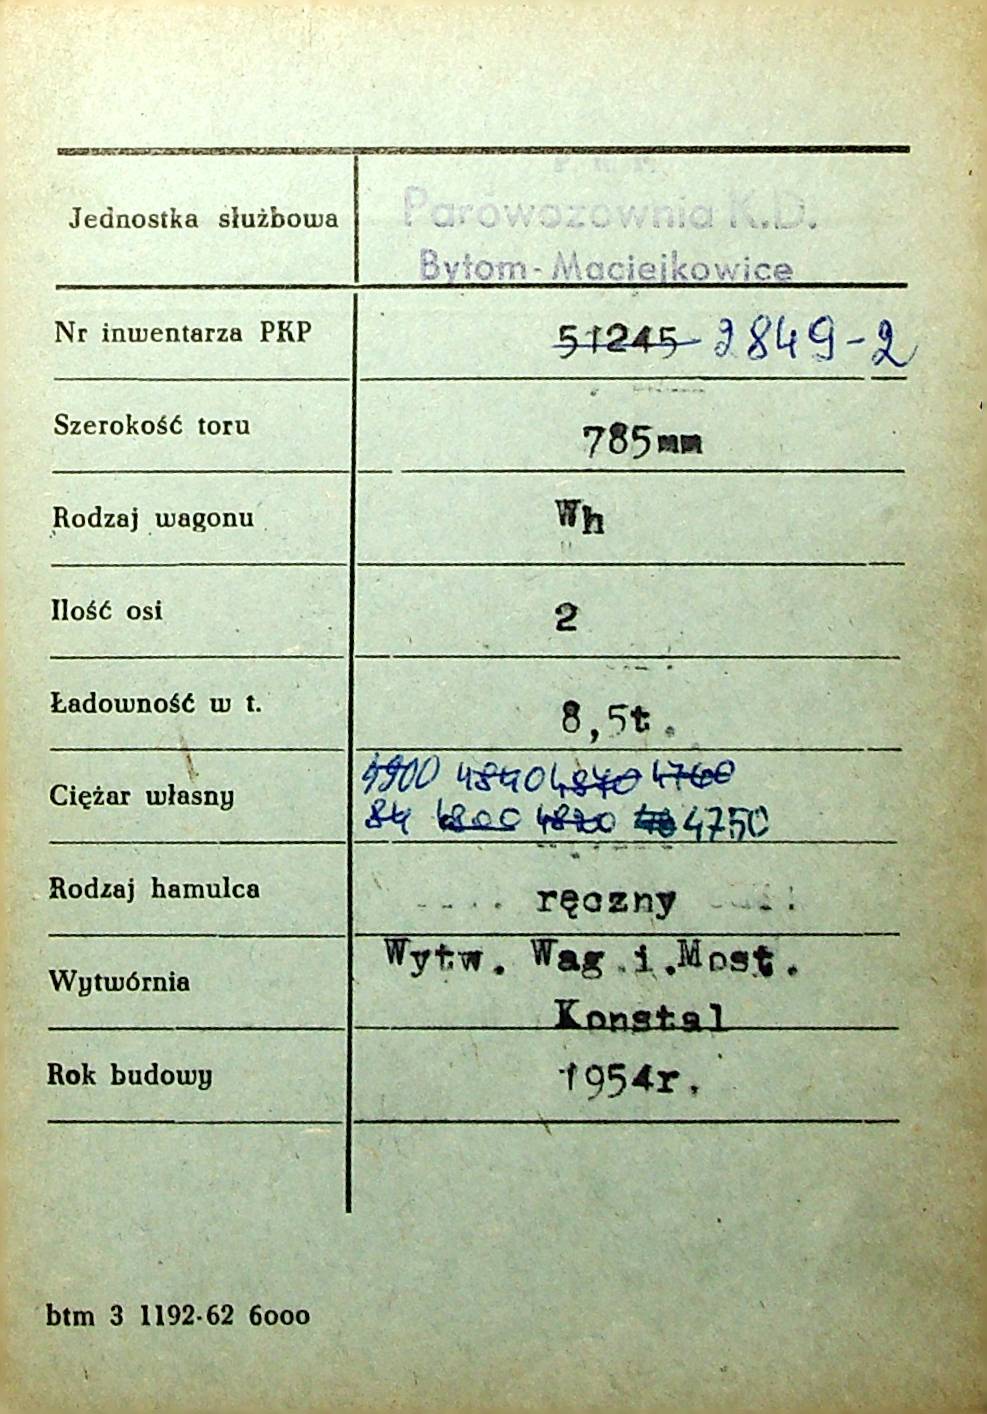 Jednostka służbowa
Parowozownia K.D.
Bytom-Maciejkowice
Nr inwentarza PKP 51245 2849-2
Szerokość toru 785mm
Rodzaj wagonu Wh
Ilość osi 2
Ładowność w t. 8,5t.
4840 4840 4760
Ciężar własny
84 4800 4820 4750
Rodzaj hamulca ręczny
Wytw. Wag.i.Most.
Wytwórnia
Konstal
Rok budowy 1954r.
btm 3 1192-62 6000